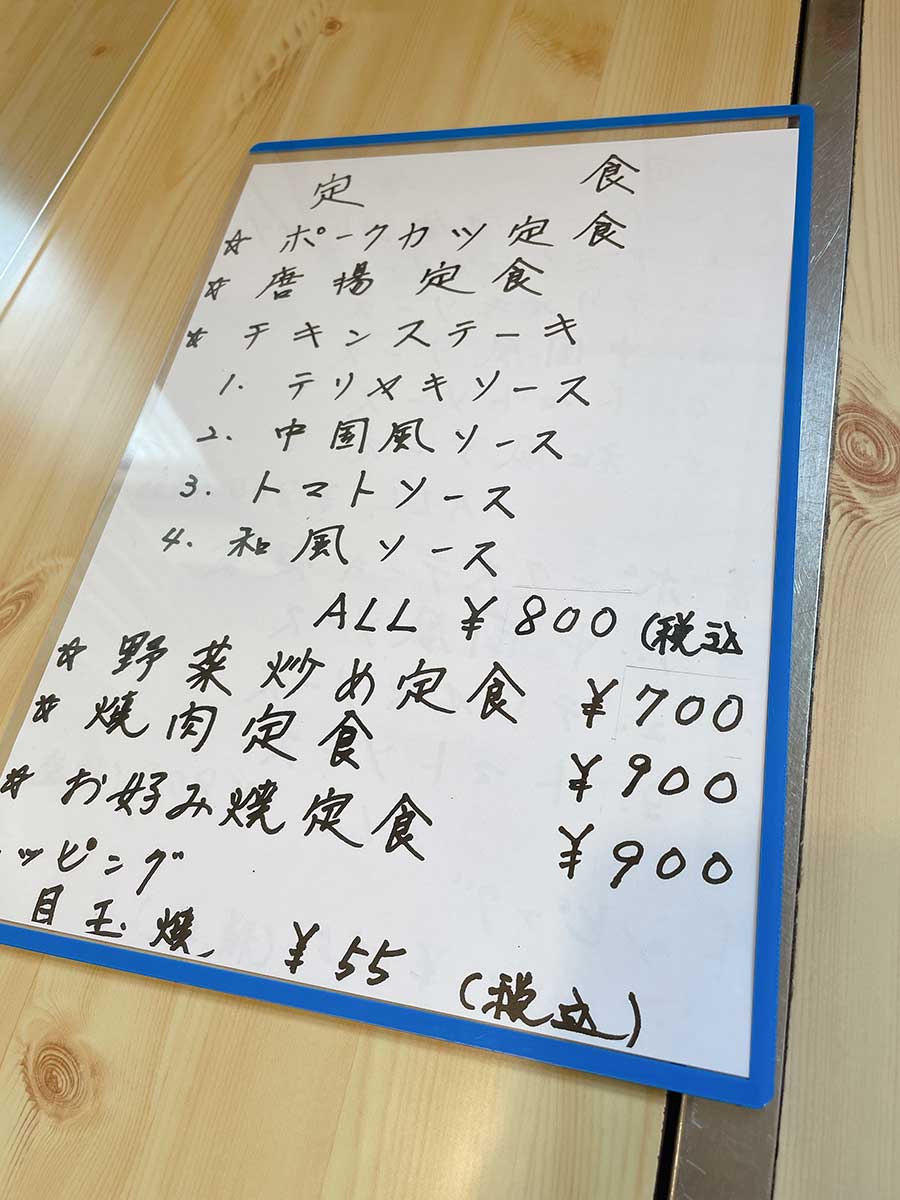 定 食
☆ ポークカツ定食
☆ 唐揚定食
☆ チキンステーキ
1. テリヤキソース
2. 中国風ソース
3. トマトソース
4. 和風ソース
ALL ¥800(税込
☆ 野菜炒め定食 ¥700
☆ 焼肉定食 ¥900
☆ お好み焼定食 ¥900
ッピング
目玉焼 ¥55 (税込)